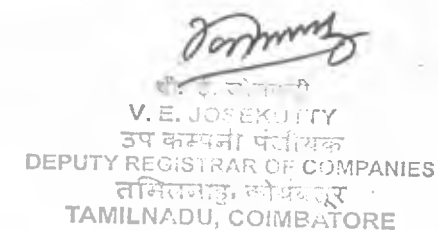 V. E. JOSEKUTTY
उप कम्पनी पंजीयक
DEPUTY REGISTRAR OF COMPANIES
तमिलनाडु,
TAMILNADU, COIMBATORE